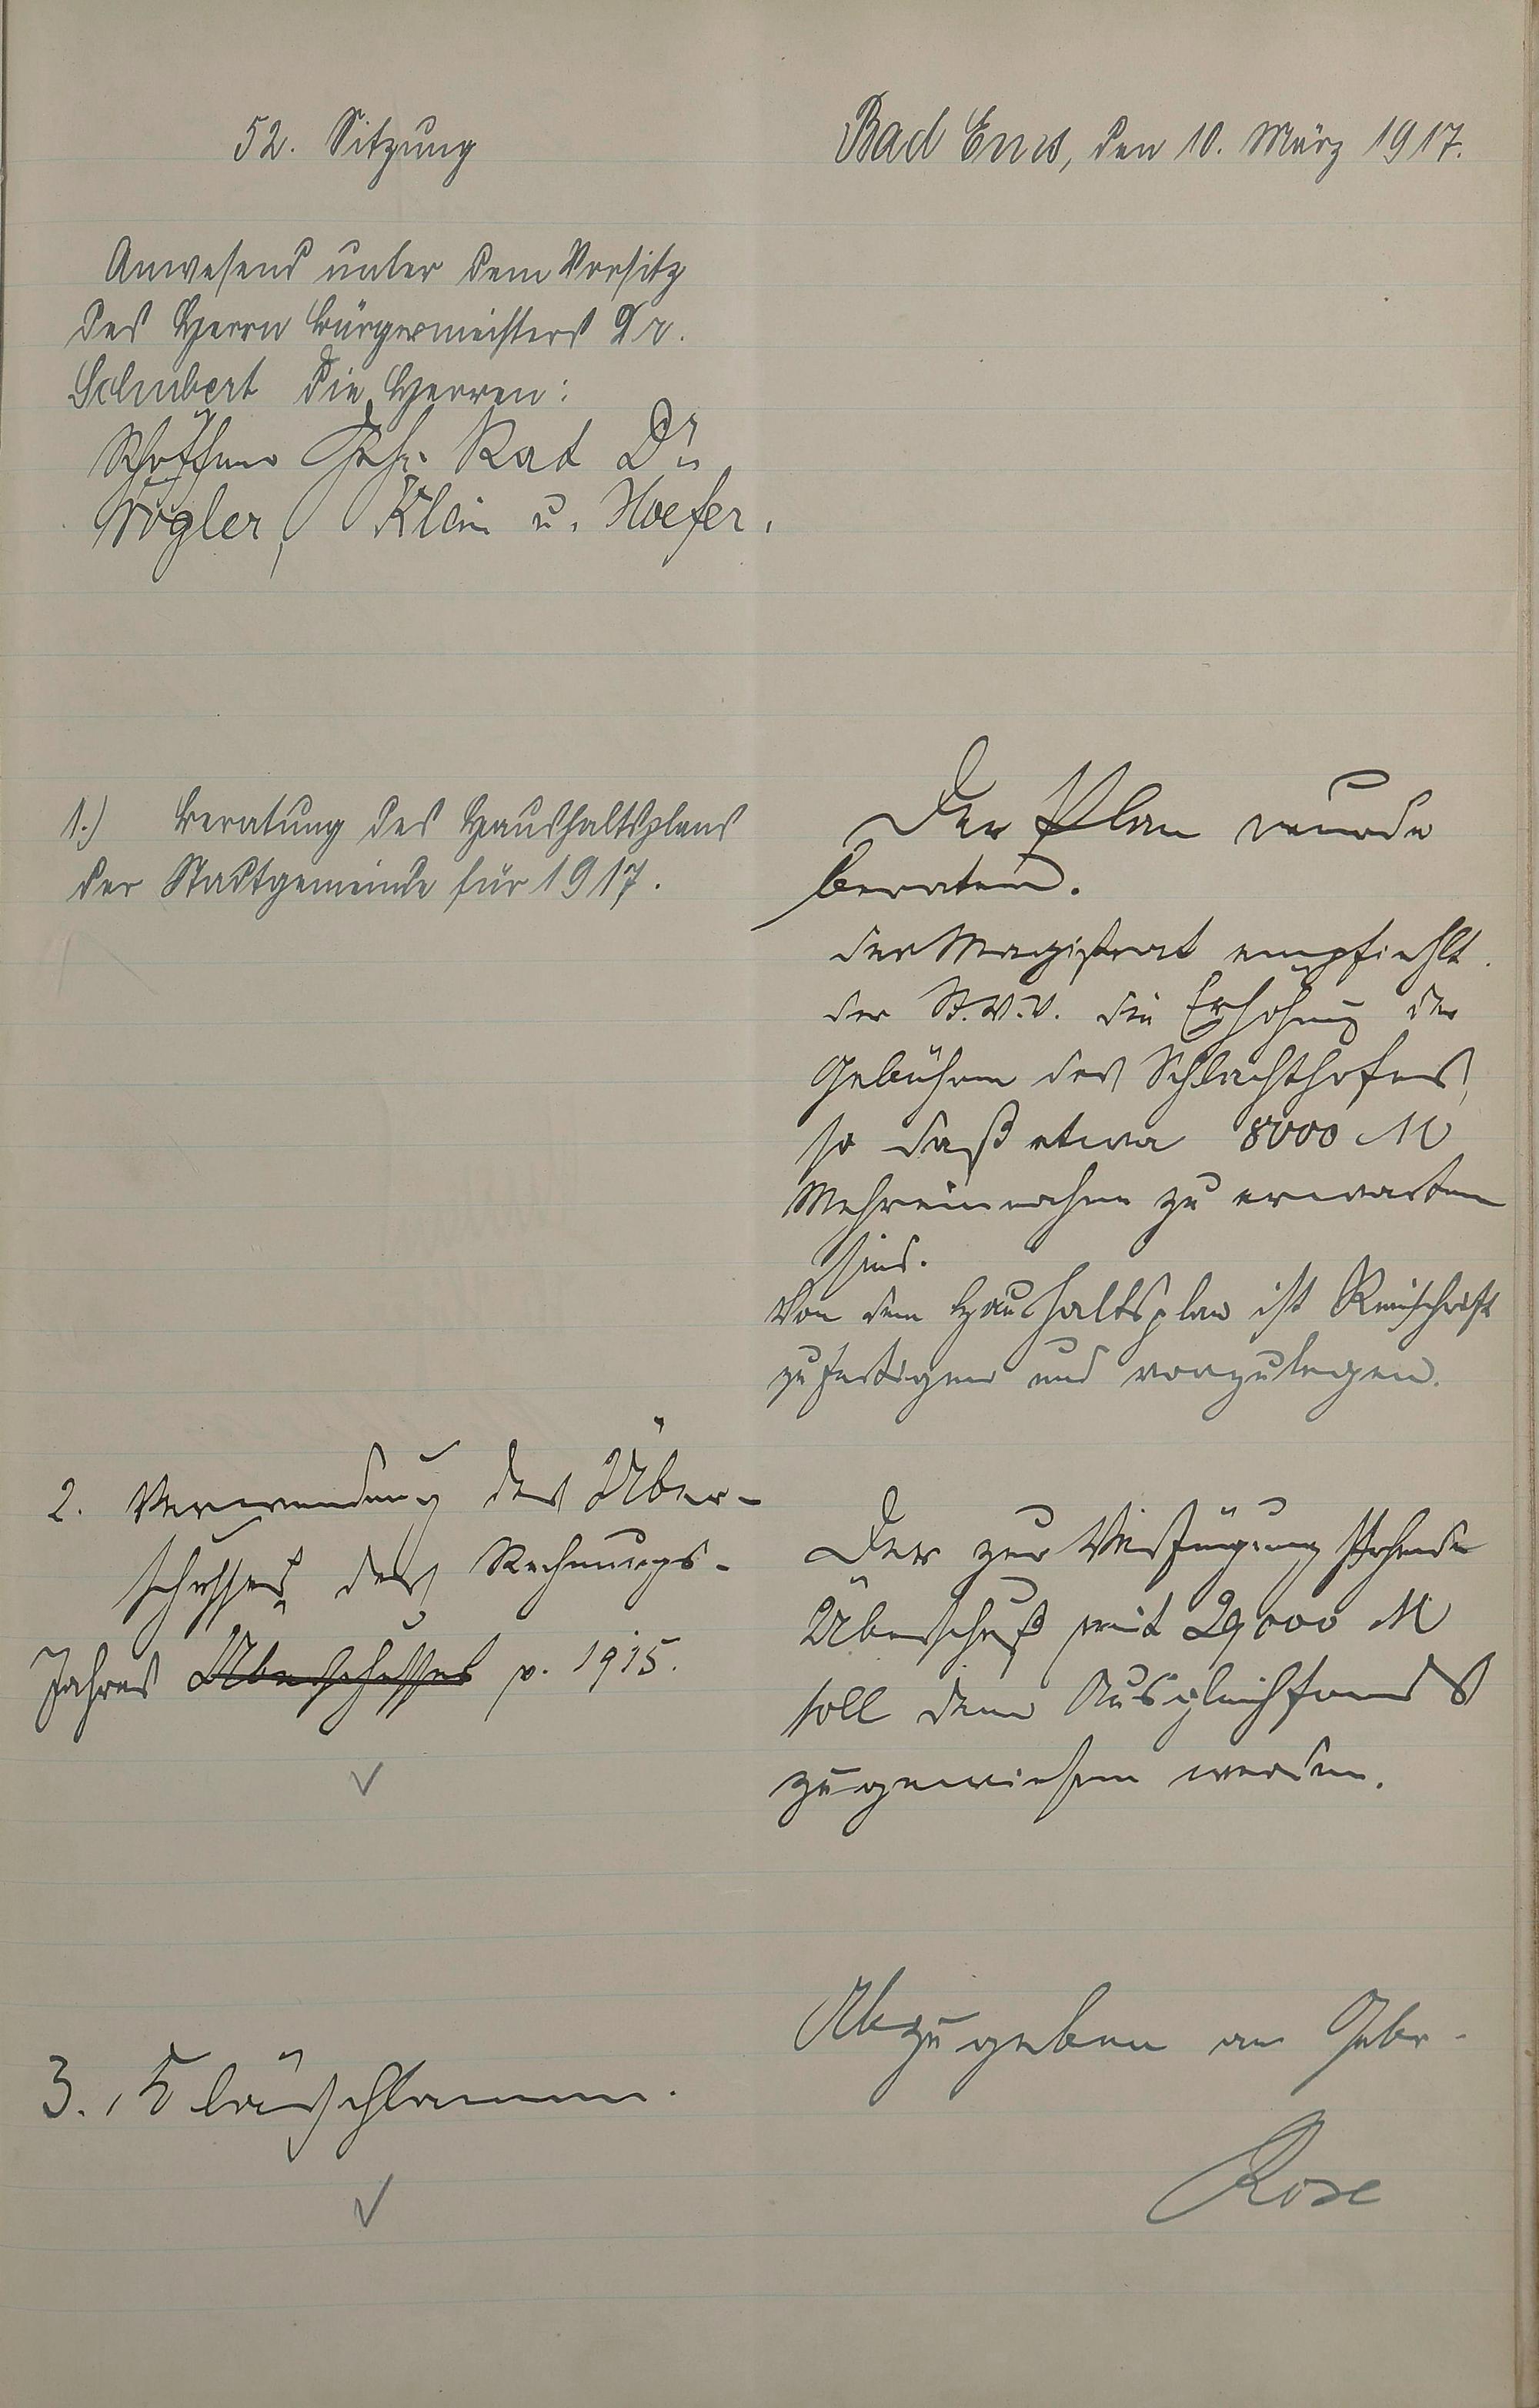 52. Sitzung
Bad Ems, den 10. März 1917.
Anwesend unter dem Vorsitz
des Herrn Bürgermeisters Dr.
Schubert die Herren:
Schöffen Geh. Rat Dr.
Vogler, Klein u. Hoefer.
1.) Beratung des Haushaltsplans
der Stadtgemeinde für 1917.
Der Plan wurde
beraten.
Der Magistrat empfiehlt
der St.V.V. die Erhöhung der
Gebühren des Schlachthofes,
so daß etwa 8000 M
Mehreinnahmen zu erwarten
sind.
Von dem Haushaltsplan ist Reinschrift
zu fertigen und vorzulegen.
2. Verwendung des Über-
schusses des Rechnungs-
Jahres Überschusses p. 1915.
Der zur Verfügung stehende
Überschuß mit 29000 M
soll dem Ausgleichfonds
zugewiesen werden.
3. Klärschlamm.
Abzugeben an Gebr.
Rose